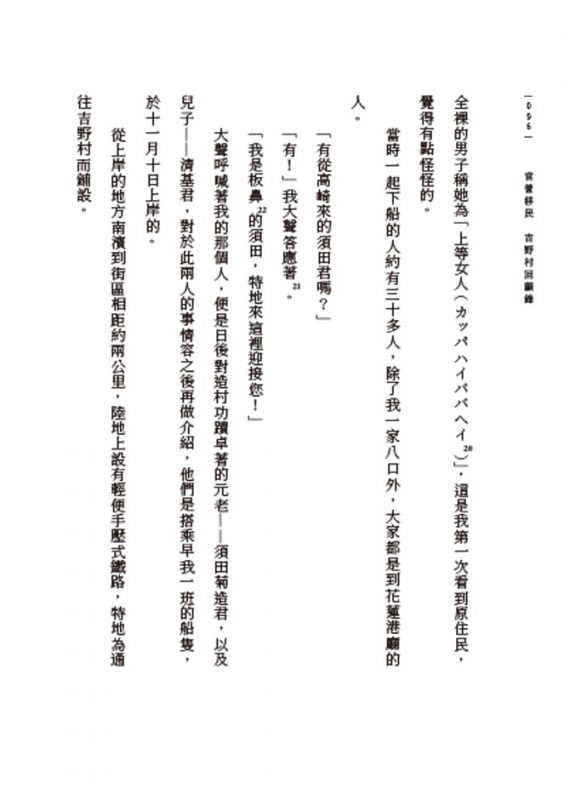 —006—　官營移民　吉野村回顧錄
全裸的男子稱她為「上等女人（カッパハイババヘイ20）」，這是我第一次看到原住民，
覺得有點怪怪的。
當時一起下船的人約有三十多人，除了我一家八口外，大家都是到花蓮港廳的
人。
「有從高崎來的須田君嗎？」
「有！」我大聲答應著21。
「我是板鼻22的須田，特地來這裡迎接您！」
大聲呼喊著我的那個人，便是日後對造村功蹟卓著的元老——須田菊造君，以及
兒子——濟基君，對於此兩人的事情容之後再做介紹，他們是搭乘早我一班的船隻，
於十一月十日上岸的。
從上岸的地方南濱到街區相距約兩公里，陸地上設有輕便手壓式鐵路，特地為通
往吉野村而鋪設。